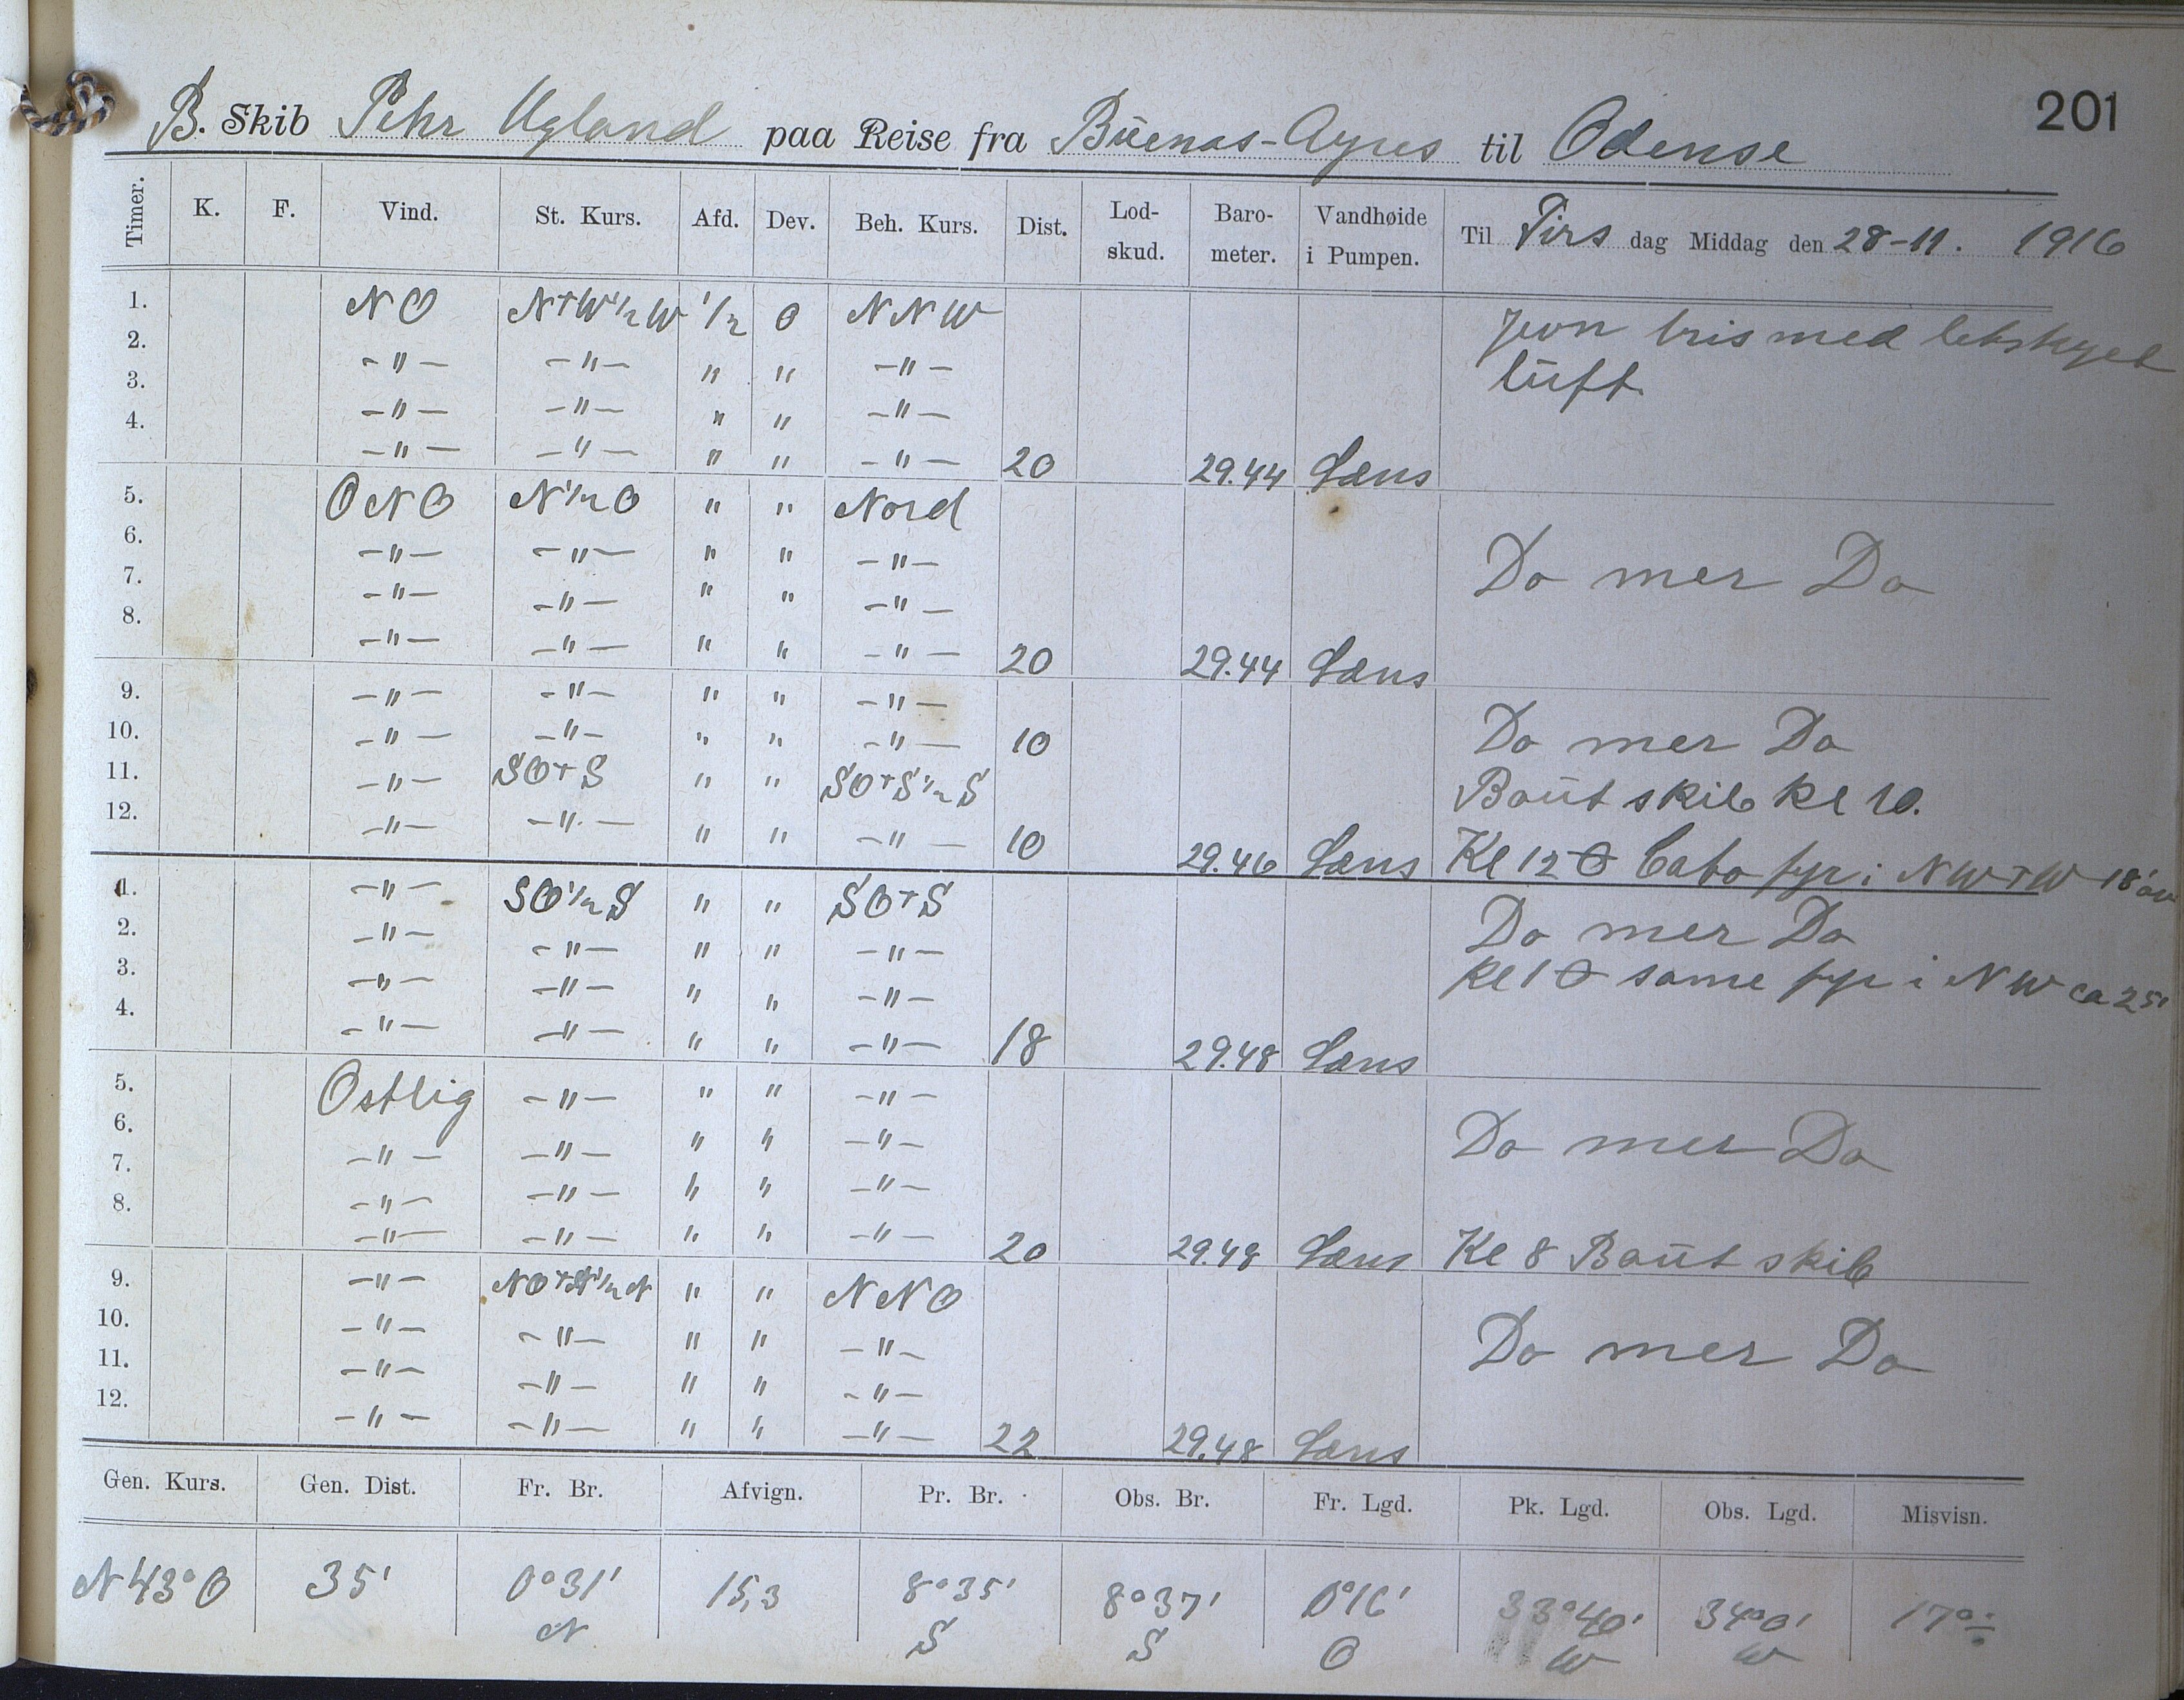 201
B. Skib Pehr Ugland paa Reise fra Buenas-Ayres til Odense
Timer. K. F. Vind. St. Kurs. Afd. Dev. Beh. Kurs. Dist. Lod-skud. Baro-meter. Vandhøide i Pumpen. Til Tirs dag Middag den 28-11. 1916
1. NO N+W½W ½ 0 NNW Jevn bris med letskyet
2. -"- -"- " " -"- luft.
3. -"- -"- " " -"-
4. -"- -"- " " -"- 20 29.44 Læns
5. ONO N½O " " Nord
6. -"- -"- " " -"- Do mer Do
7. -"- -"- " " -"-
8. -"- -"- " " -"- 20 29.44 Læns
9. -"- -"- " " -"- Do mer Do
10. -"- -"- " " -"- 10
11. -"- SO+S " " SO+S½S Baut skib kl 10.
12. -"- -"- " " -"- 10 29.46 Læns Kl 12 Cabo fyr i NW+W 18'
1. -"- SO½S " " SO+S Do mer Do
2. -"- -"- " " -"-
3. -"- -"- " " -"- kl 1 same fyr i NW ca 25'
4. -"- -"- " " -"- 18 29.48 Læns
5. Ostlig -"- " " -"-
6. -"- -"- " " -"- Do mer Do
7. -"- -"- " " -"-
8. -"- -"- " " -"- 20 29.48 Læns Kl 8 Baut skib
9. -"- NO+N½N " " NNO
10. -"- -"- " " -"- Do mer Do
11. -"- -"- " " -"-
12. -"- -"- " " -"- 22 29.48 Læns
Gen. Kurs. Gen. Dist. Fr. Br. Afvign. Pr. Br. Obs. Br. Fr. Lgd. Pk. Lgd. Obs. Lgd. Misvisn.
N43°O 35' 0°31' 15,3 8°35' 8°37' 0°16' 33°40' 34°0' 17°÷
N S S O W W